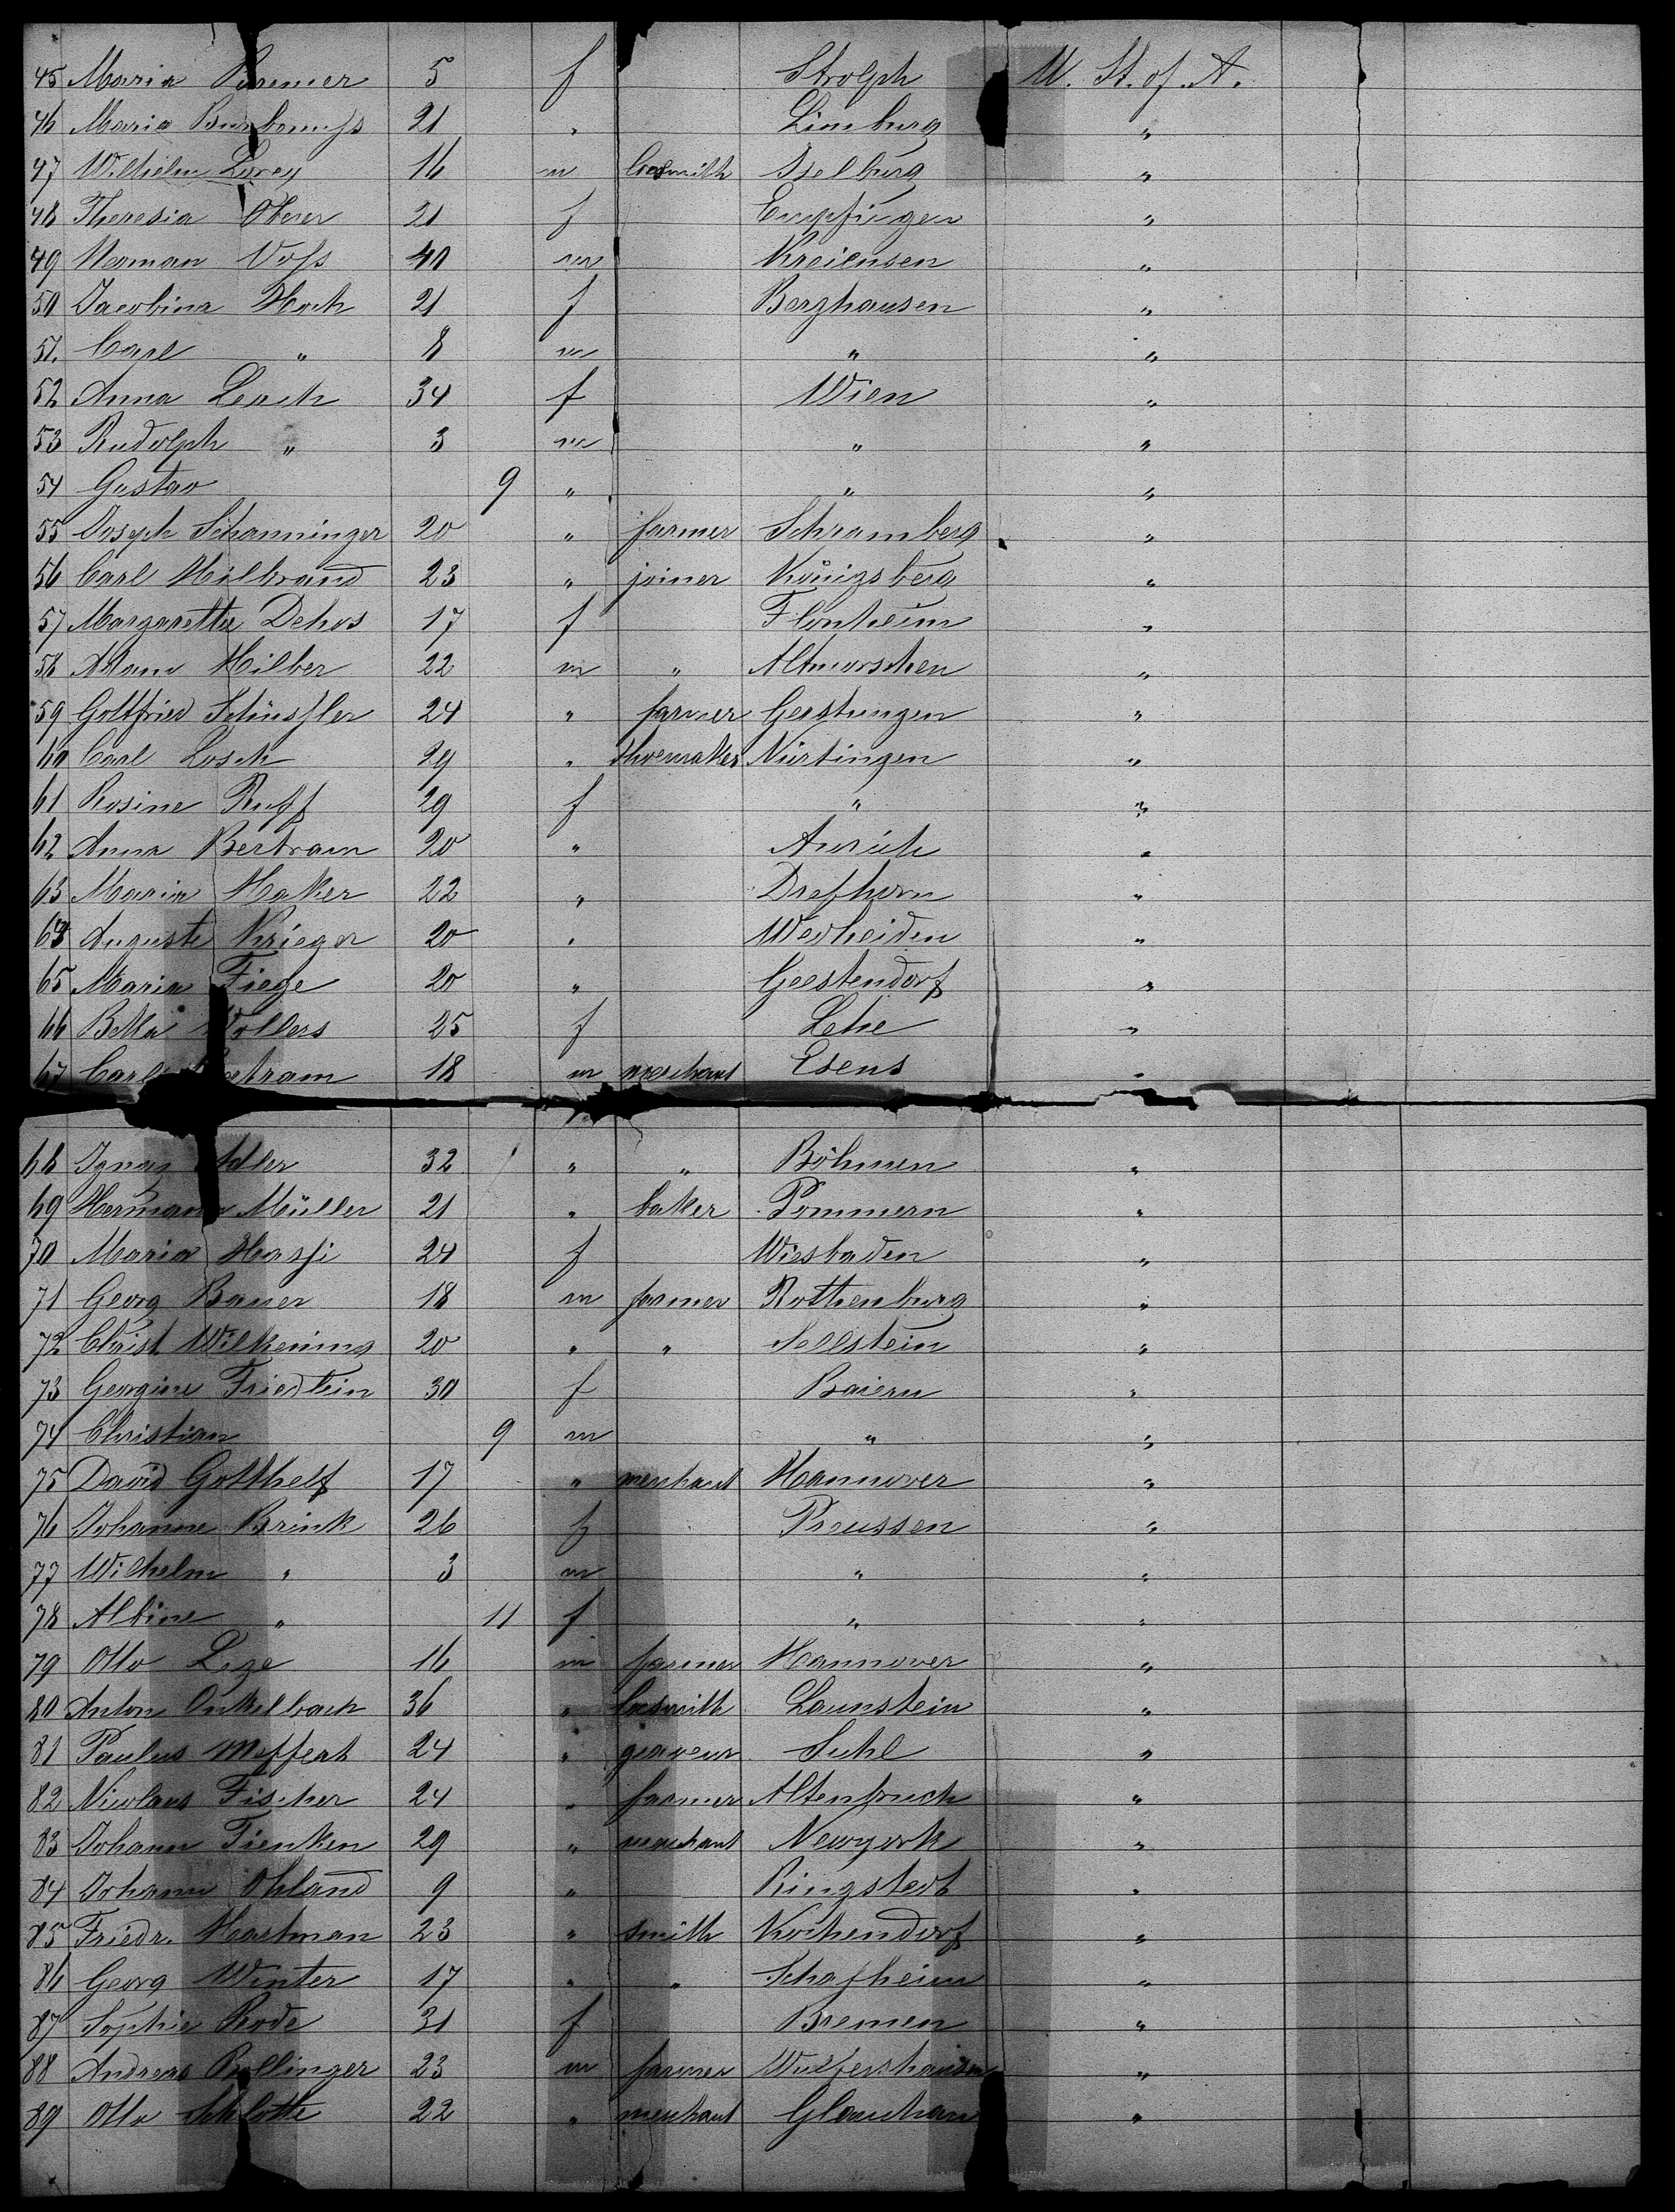 45 Maria Bremer 5 f Strolph U. St. of A.
46 Maria 21 " Limburg "
47 Wilhelm Lorey 16 m locsmith Iselburg "
48 Theresia Oberer 21 f Empfingen "
49 Herman Voss 40 m Kreiensen "
50 Jacobina Hoch 21 f Berghausen "
51. Carl " 8 m " "
52 Anna Lesch 34 f Wien "
53 Rudolph " 3 m " "
54 Gustav 9 " " "
55 Joseph Schanninger 20 " farmer Schramberg "
56 Carl Hilbrand 23 " joiner Königsberg "
57 Margarethe Dehos 17 f Flonheim "
58 Adam Hilber 22 m " Altmorschen "
59 Gottfried Schüssler 24 " farmer Gerstungen "
60 Carl Losch 29 " shoemaker Nürtingen "
61 Rosine Ruff 29 f " "
62 Anna Bertram 20 " Aurich "
63 Maria Haker 22 " "
64 Auguste Krieger 20 " "
65 Maria Fiege 20 " Geestendorf "
66 Betta Wollers 25 f Lehe "
67 Carl 18 m merchant Esens "
68 Ignaz Adler 32 " " Böhmen "
69 Hermann Müller 21 " baker Pommern "
70 Maria 24 f Wiesbaden "
71 Georg Bauer 18 m farmer Rothenburg "
72 Christ. Wilkening 20 " " Sellstein "
73 Georgine Friedlein 30 f Baiern "
74 Christian 9 m " "
75 David Gotthelf 17 " merchant Hannover "
76 Johanne Brink 26 f Preussen "
77 Wilhelm " 3 m " "
78 Albine " 11 f " "
79 Otto Leze 16 m farmer Hannover "
80 Anton Onkelbach 36 " locsmith Launstein "
81 Paulus Meffert 24 " graveur Suhl "
82 Nicolaus Fischer 24 " farmer Altenbruch "
83 Johann Tienken 29 " merchant Newyork "
84 Johann Ohland 9 " Ringstedt "
85 Friedr. Hartman 23 " smith Kochendorf "
86 Georg Winter 17 " " Schafheim "
87 Sophie Rode 31 f Bremen "
88 Andreas Bollinger 23 m farmer Wülfershausen "
89 Otto Schlotte 22 " merchant Glauchau "